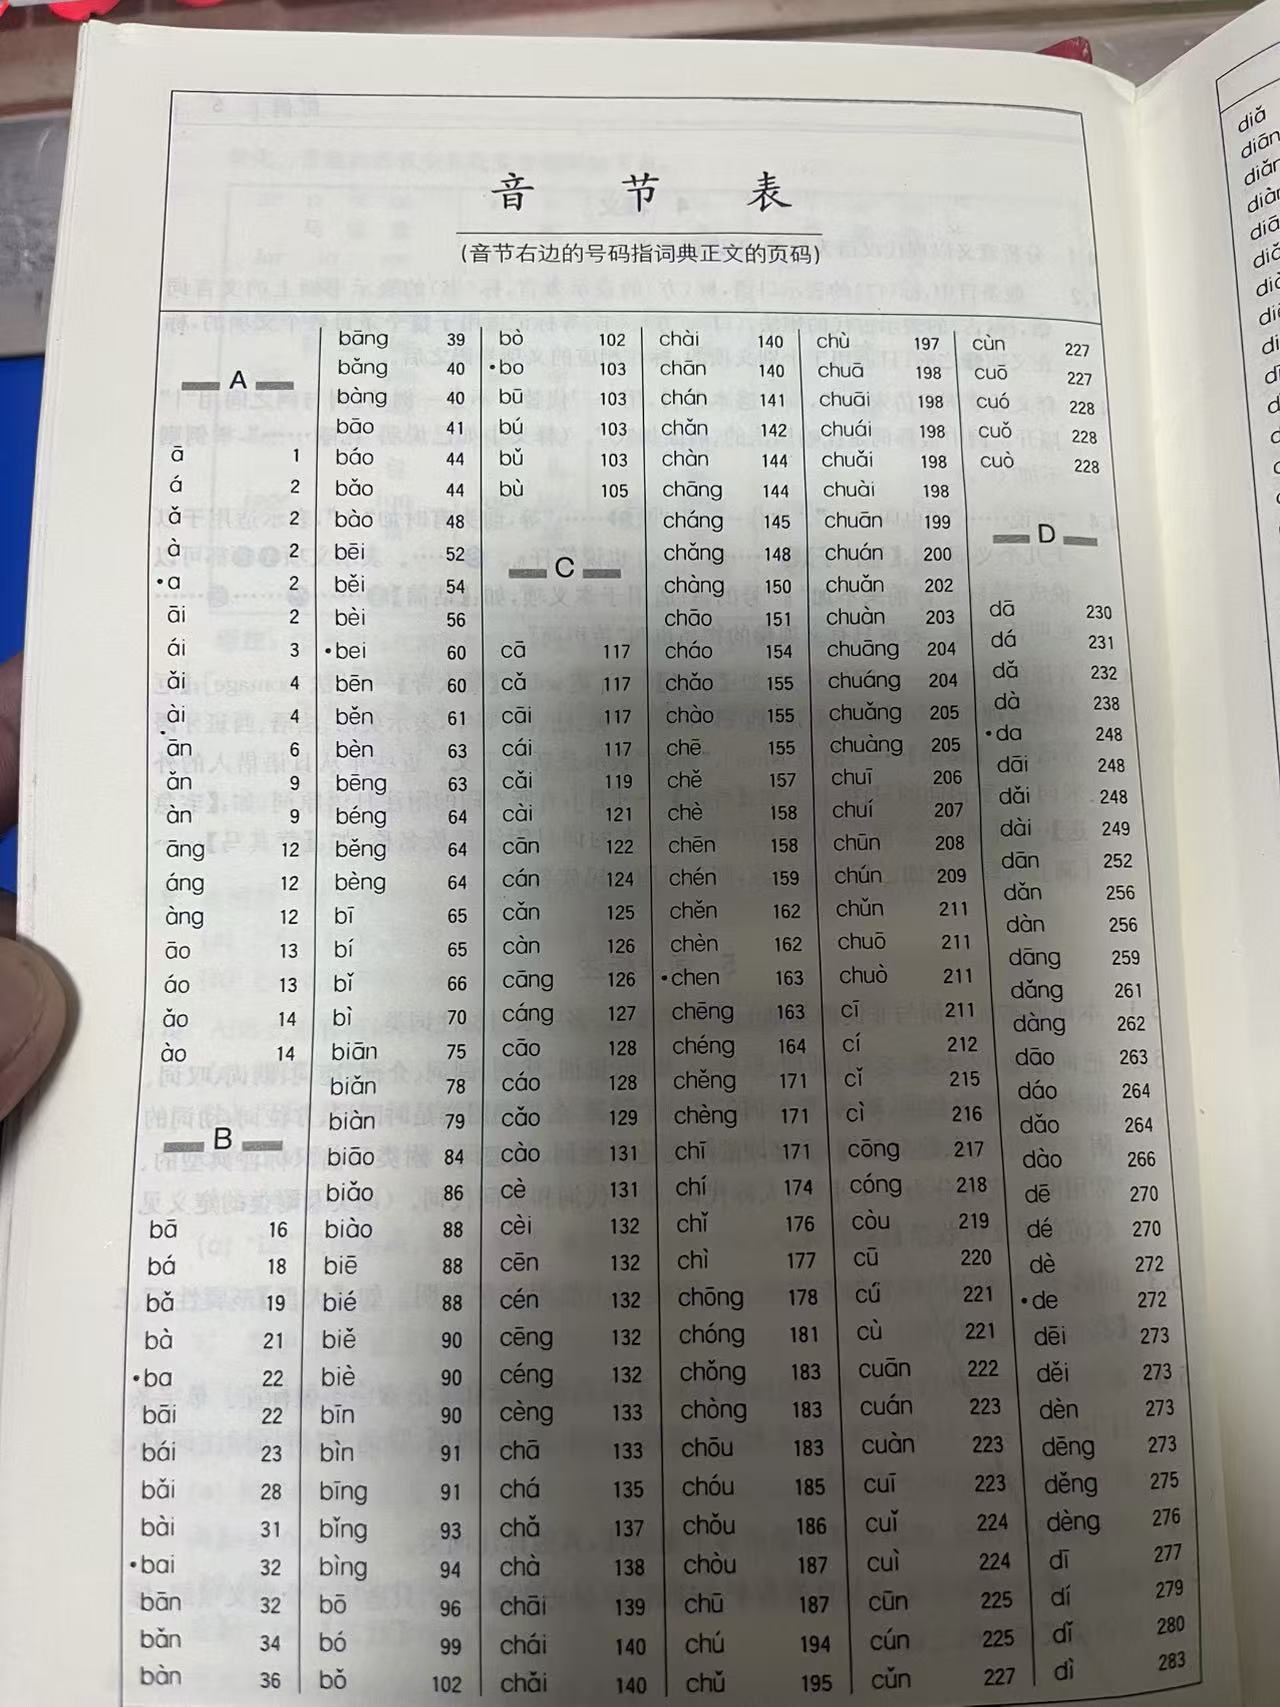 音 节 表
(音节右边的号码指词典正文的页码)
A
ā 1
á 2
ǎ 2
à 2
·a 2
āi 2
ái 3
ǎi 4
ài 4
ān 6
ǎn 9
àn 9
āng 12
áng 12
àng 12
āo 13
áo 13
ǎo 14
ào 14
B
bā 16
bá 18
bǎ 19
bà 21
·ba 22
bāi 22
bái 23
bǎi 28
bài 31
·bai 32
bān 32
bǎn 34
bàn 36
bāng 39
bǎng 40
bàng 40
bāo 41
báo 44
bǎo 44
bào 48
bēi 52
běi 54
bèi 56
·bei 60
bēn 60
běn 61
bèn 63
bēng 63
béng 64
běng 64
bèng 64
bī 65
bí 65
bǐ 66
bì 70
biān 75
biǎn 78
biàn 79
biāo 84
biǎo 86
biào 88
biē 88
bié 88
biě 90
biè 90
bīn 90
bìn 91
bīng 91
bǐng 93
bìng 94
bō 96
bó 99
bǒ 102
bò 102
·bo 103
bū 103
bú 103
bǔ 103
bù 105
C
cā 117
cǎ 117
cāi 117
cái 117
cǎi 119
cài 121
cān 122
cán 124
cǎn 125
càn 126
cāng 126
cáng 127
cāo 128
cáo 128
cǎo 129
cào 131
cè 131
cèi 132
cēn 132
cén 132
cēng 132
céng 132
cèng 133
chā 133
chá 135
chǎ 137
chà 138
chāi 139
chái 140
chǎi 140
chài 140
chān 140
chán 141
chǎn 142
chàn 144
chāng 144
cháng 145
chǎng 148
chàng 150
chāo 151
cháo 154
chǎo 155
chào 155
chē 155
chě 157
chè 158
chēn 158
chén 159
chěn 162
chèn 162
·chen 163
chēng 163
chéng 164
chěng 171
chèng 171
chī 171
chí 174
chǐ 176
chì 177
chōng 178
chóng 181
chǒng 183
chòng 183
chōu 183
chóu 185
chǒu 186
chòu 187
chū 187
chú 194
chǔ 195
chù 197
chuā 198
chuāi 198
chuái 198
chuǎi 198
chuài 198
chuān 199
chuán 200
chuǎn 202
chuàn 203
chuāng 204
chuáng 204
chuǎng 205
chuàng 205
chuī 206
chuí 207
chūn 208
chún 209
chǔn 211
chuō 211
chuò 211
cī 211
cí 212
cǐ 215
cì 216
cōng 217
cóng 218
còu 219
cū 220
cú 221
cù 221
cuān 222
cuán 223
cuàn 223
cuī 223
cuǐ 224
cuì 224
cūn 225
cún 225
cǔn 227
cùn 227
cuō 227
cuó 228
cuǒ 228
cuò 228
D
dā 230
dá 231
dǎ 232
dà 238
·da 248
dāi 248
dǎi 248
dài 249
dān 252
dǎn 256
dàn 256
dāng 259
dǎng 261
dàng 262
dāo 263
dáo 264
dǎo 264
dào 266
dē 270
dé 270
dè 272
·de 272
dēi 273
děi 273
dèn 273
dēng 273
děng 275
dèng 276
dī 277
dí 279
dǐ 280
dì 283
diǎ